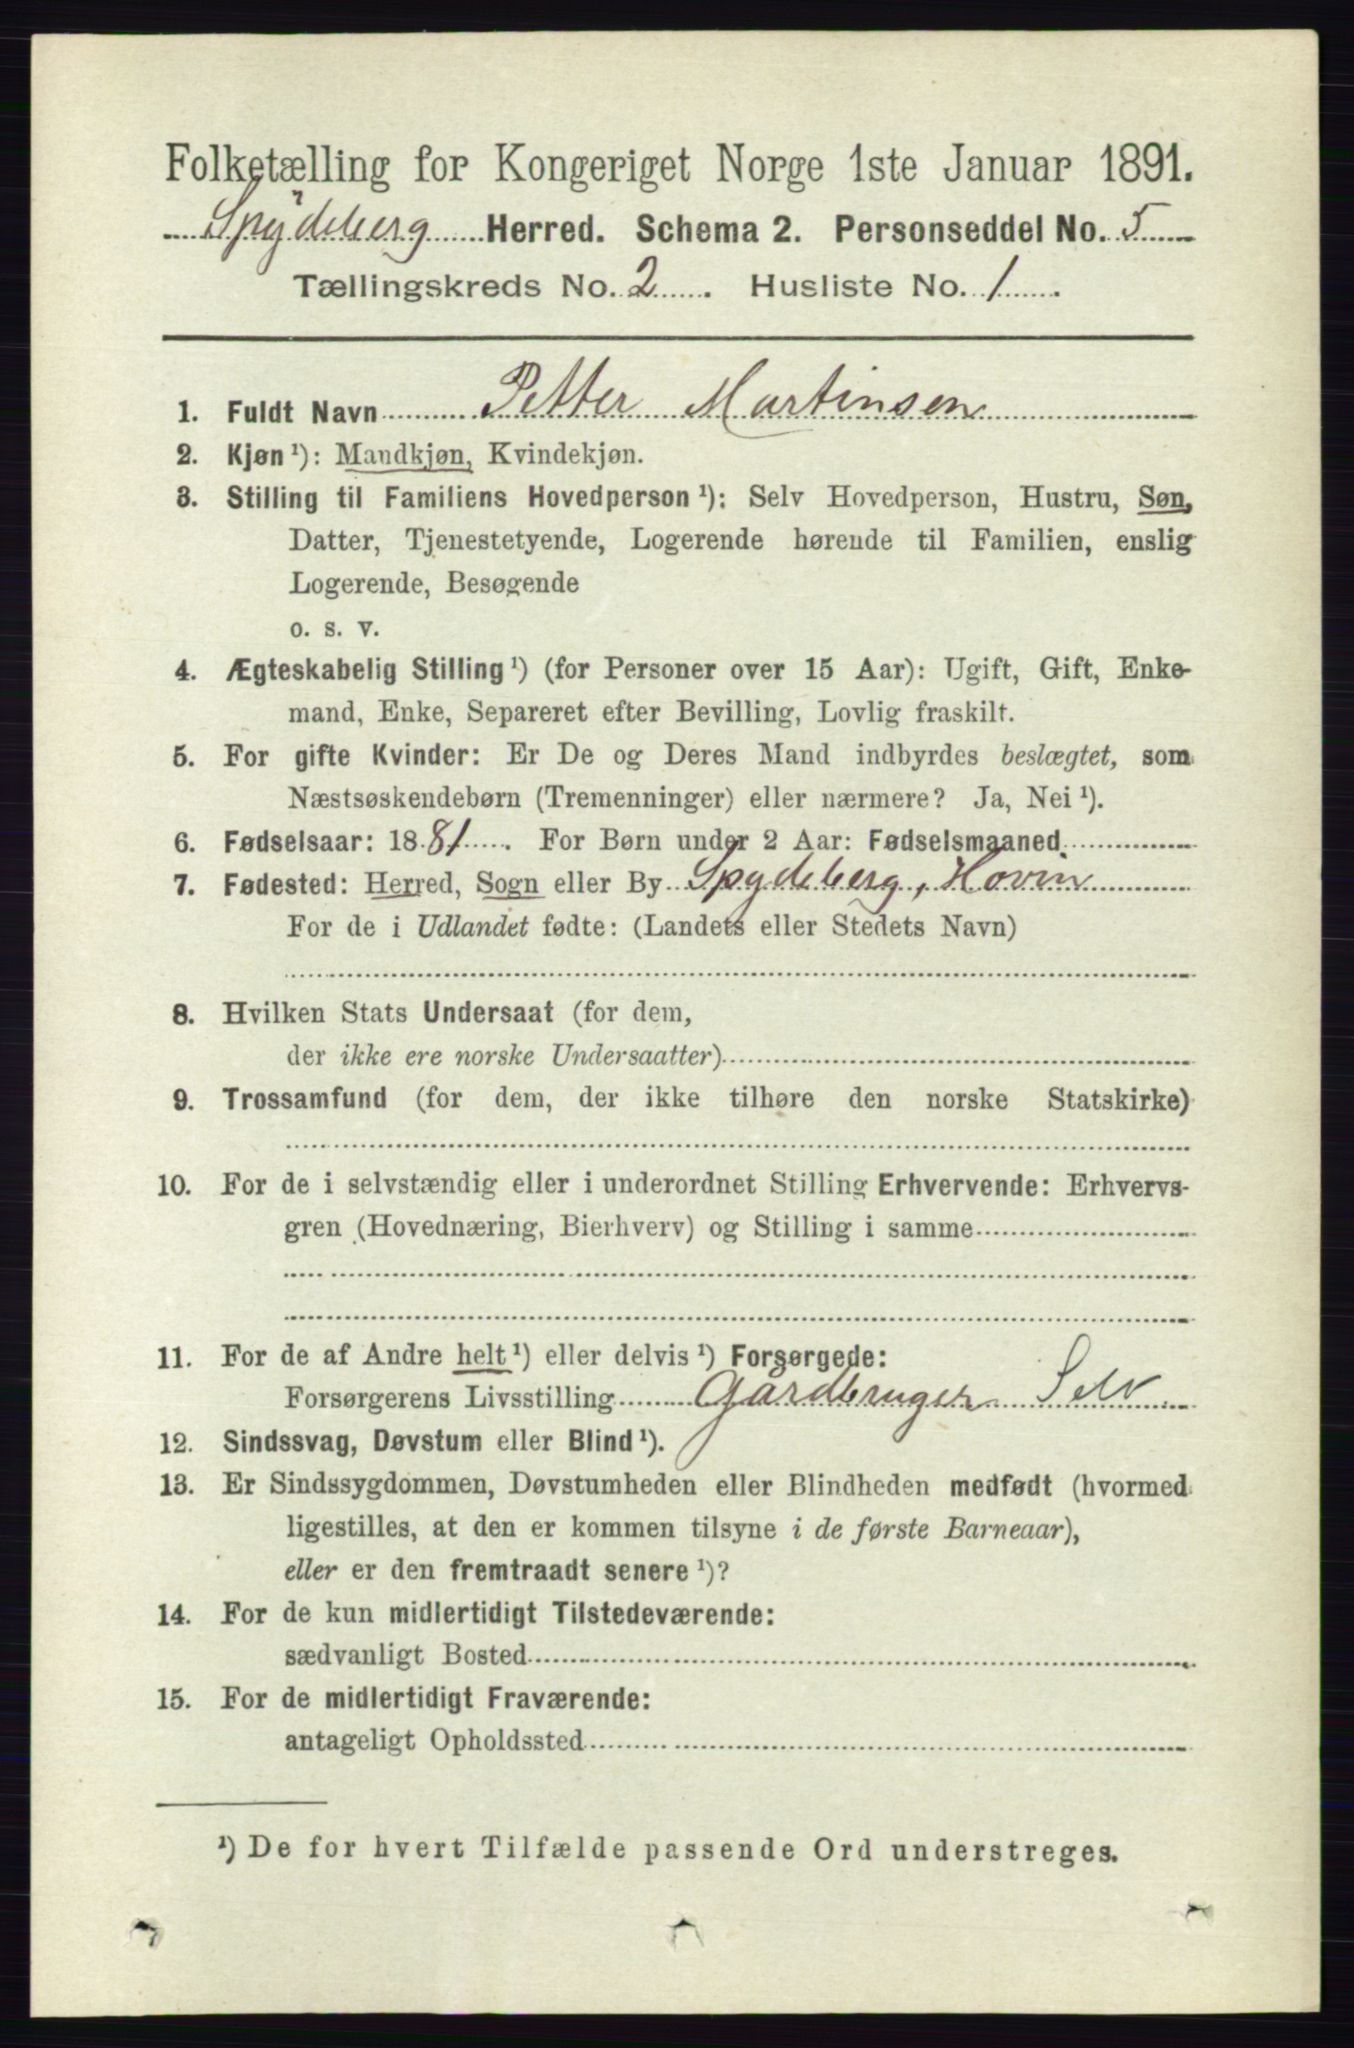 Folketælling for Kongeriget Norge 1ste Januar 1891.
Spydeberg Herred. Schema 2. Personseddel No. 5
Tællingskreds No. 2. Husliste No. 1.
1. Fuldt Navn Petter Martinsen
2. Kjøn ¹): Mandkjøn, Kvindekjøn.
3. Stilling til Familiens Hovedperson ¹): Selv Hovedperson, Hustru, Søn,
Datter, Tjenestetyende, Logerende hørende til Familien, enslig
Logerende, Besøgende
o. s. v.
4. Ægteskabelig Stilling ¹) (for Personer over 15 Aar): Ugift, Gift, Enke-
mand, Enke, Separeret efter Bevilling, Lovlig fraskilt.
5. For gifte Kvinder: Er De og Deres Mand indbyrdes beslægtet, som
Næstsøskendebørn (Tremenninger) eller nærmere? Ja, Nei ¹).
6. Fødselsaar: 1881. For Børn under 2 Aar: Fødselsmaaned
7. Fødested: Herred, Sogn eller By Spydeberg, Hovin
For de i Udlandet fødte: (Landets eller Stedets Navn)
8. Hvilken Stats Undersaat (for dem,
der ikke ere norske Undersaatter)
9. Trossamfund (for dem, der ikke tilhøre den norske Statskirke)
10. For de i selvstændig eller i underordnet Stilling Erhvervende: Erhvervs-
gren (Hovednæring, Bierhverv) og Stilling i samme
11. For de af Andre helt ¹) eller delvis ¹) Forsørgede:
Forsørgerens Livsstilling Gårdbruger Selv
12. Sindssvag, Døvstum eller Blind ¹).
13. Er Sindssygdommen, Døvstumheden eller Blindheden medfødt (hvormed
ligestilles, at den er kommen tilsyne i de første Barneaar),
eller er den fremtraadt senere ¹)?
14. For de kun midlertidigt Tilstedeværende:
sædvanligt Bosted
15. For de midlertidigt Fraværende:
antageligt Opholdssted
¹) De for hvert Tilfælde passende Ord understreges.